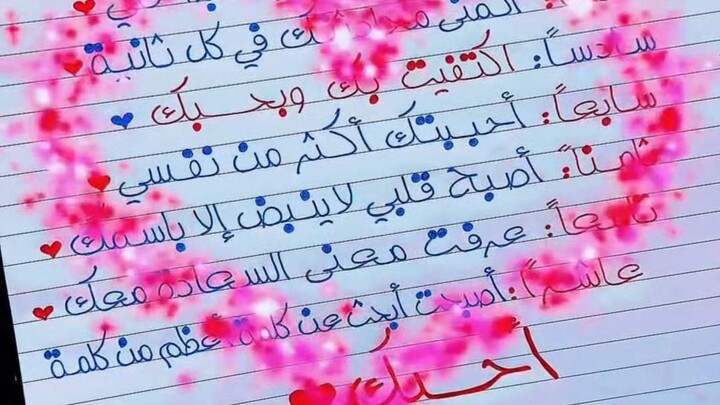 في كل ثانية
سادساً: اكتفيت بك وبحبك
سابعاً: أحببتك أكثر من نفسي
ثامناً: أصبح قلبي لا ينبض إلا باسمك
تاسعاً: عرفت معنى السعادة معك
عاشراً: أصبحت أبحث عن كلمة أعظم من كلمة
أحبك